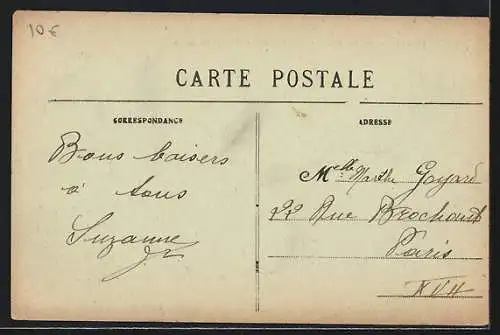 10 €
CARTE POSTALE
CORRESPONDANCE
ADRESSE
Bons baisers
à tous
Suzanne
Melle Marthe Goyard
22 Rue Brochant
Paris
XVII